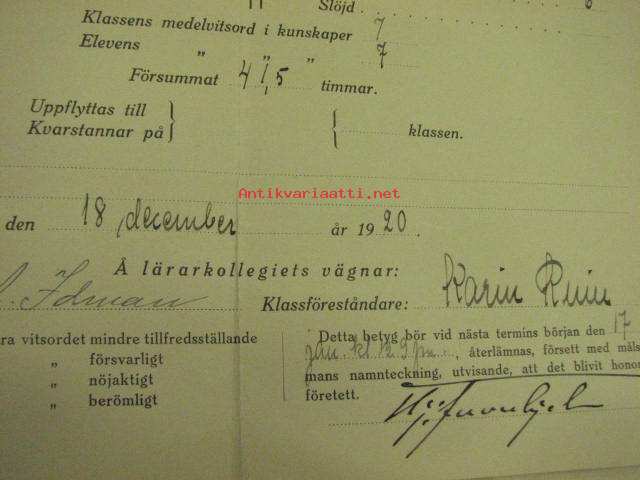 Slöjd
Klassens medelvitsord i kunskaper 7
Elevens „ „ „ 7
Försummat 41,5 timmar.
Uppflyttas till
Kvarstannar på } { klassen.
Antikvariaatti.net
den 18 december år 1920.
Å lärarkollegiets vägnar:
Idman Klassföreståndare: Karin Ruin
ra vitsordet mindre tillfredsställande
„ försvarligt
„ nöjaktigt
„ berömligt
Detta betyg bör vid nästa termins början den 17
jan. kl. 12, återlämnas, försett med måls
mans namnteckning, utvisande, att det blivit honom
företett.